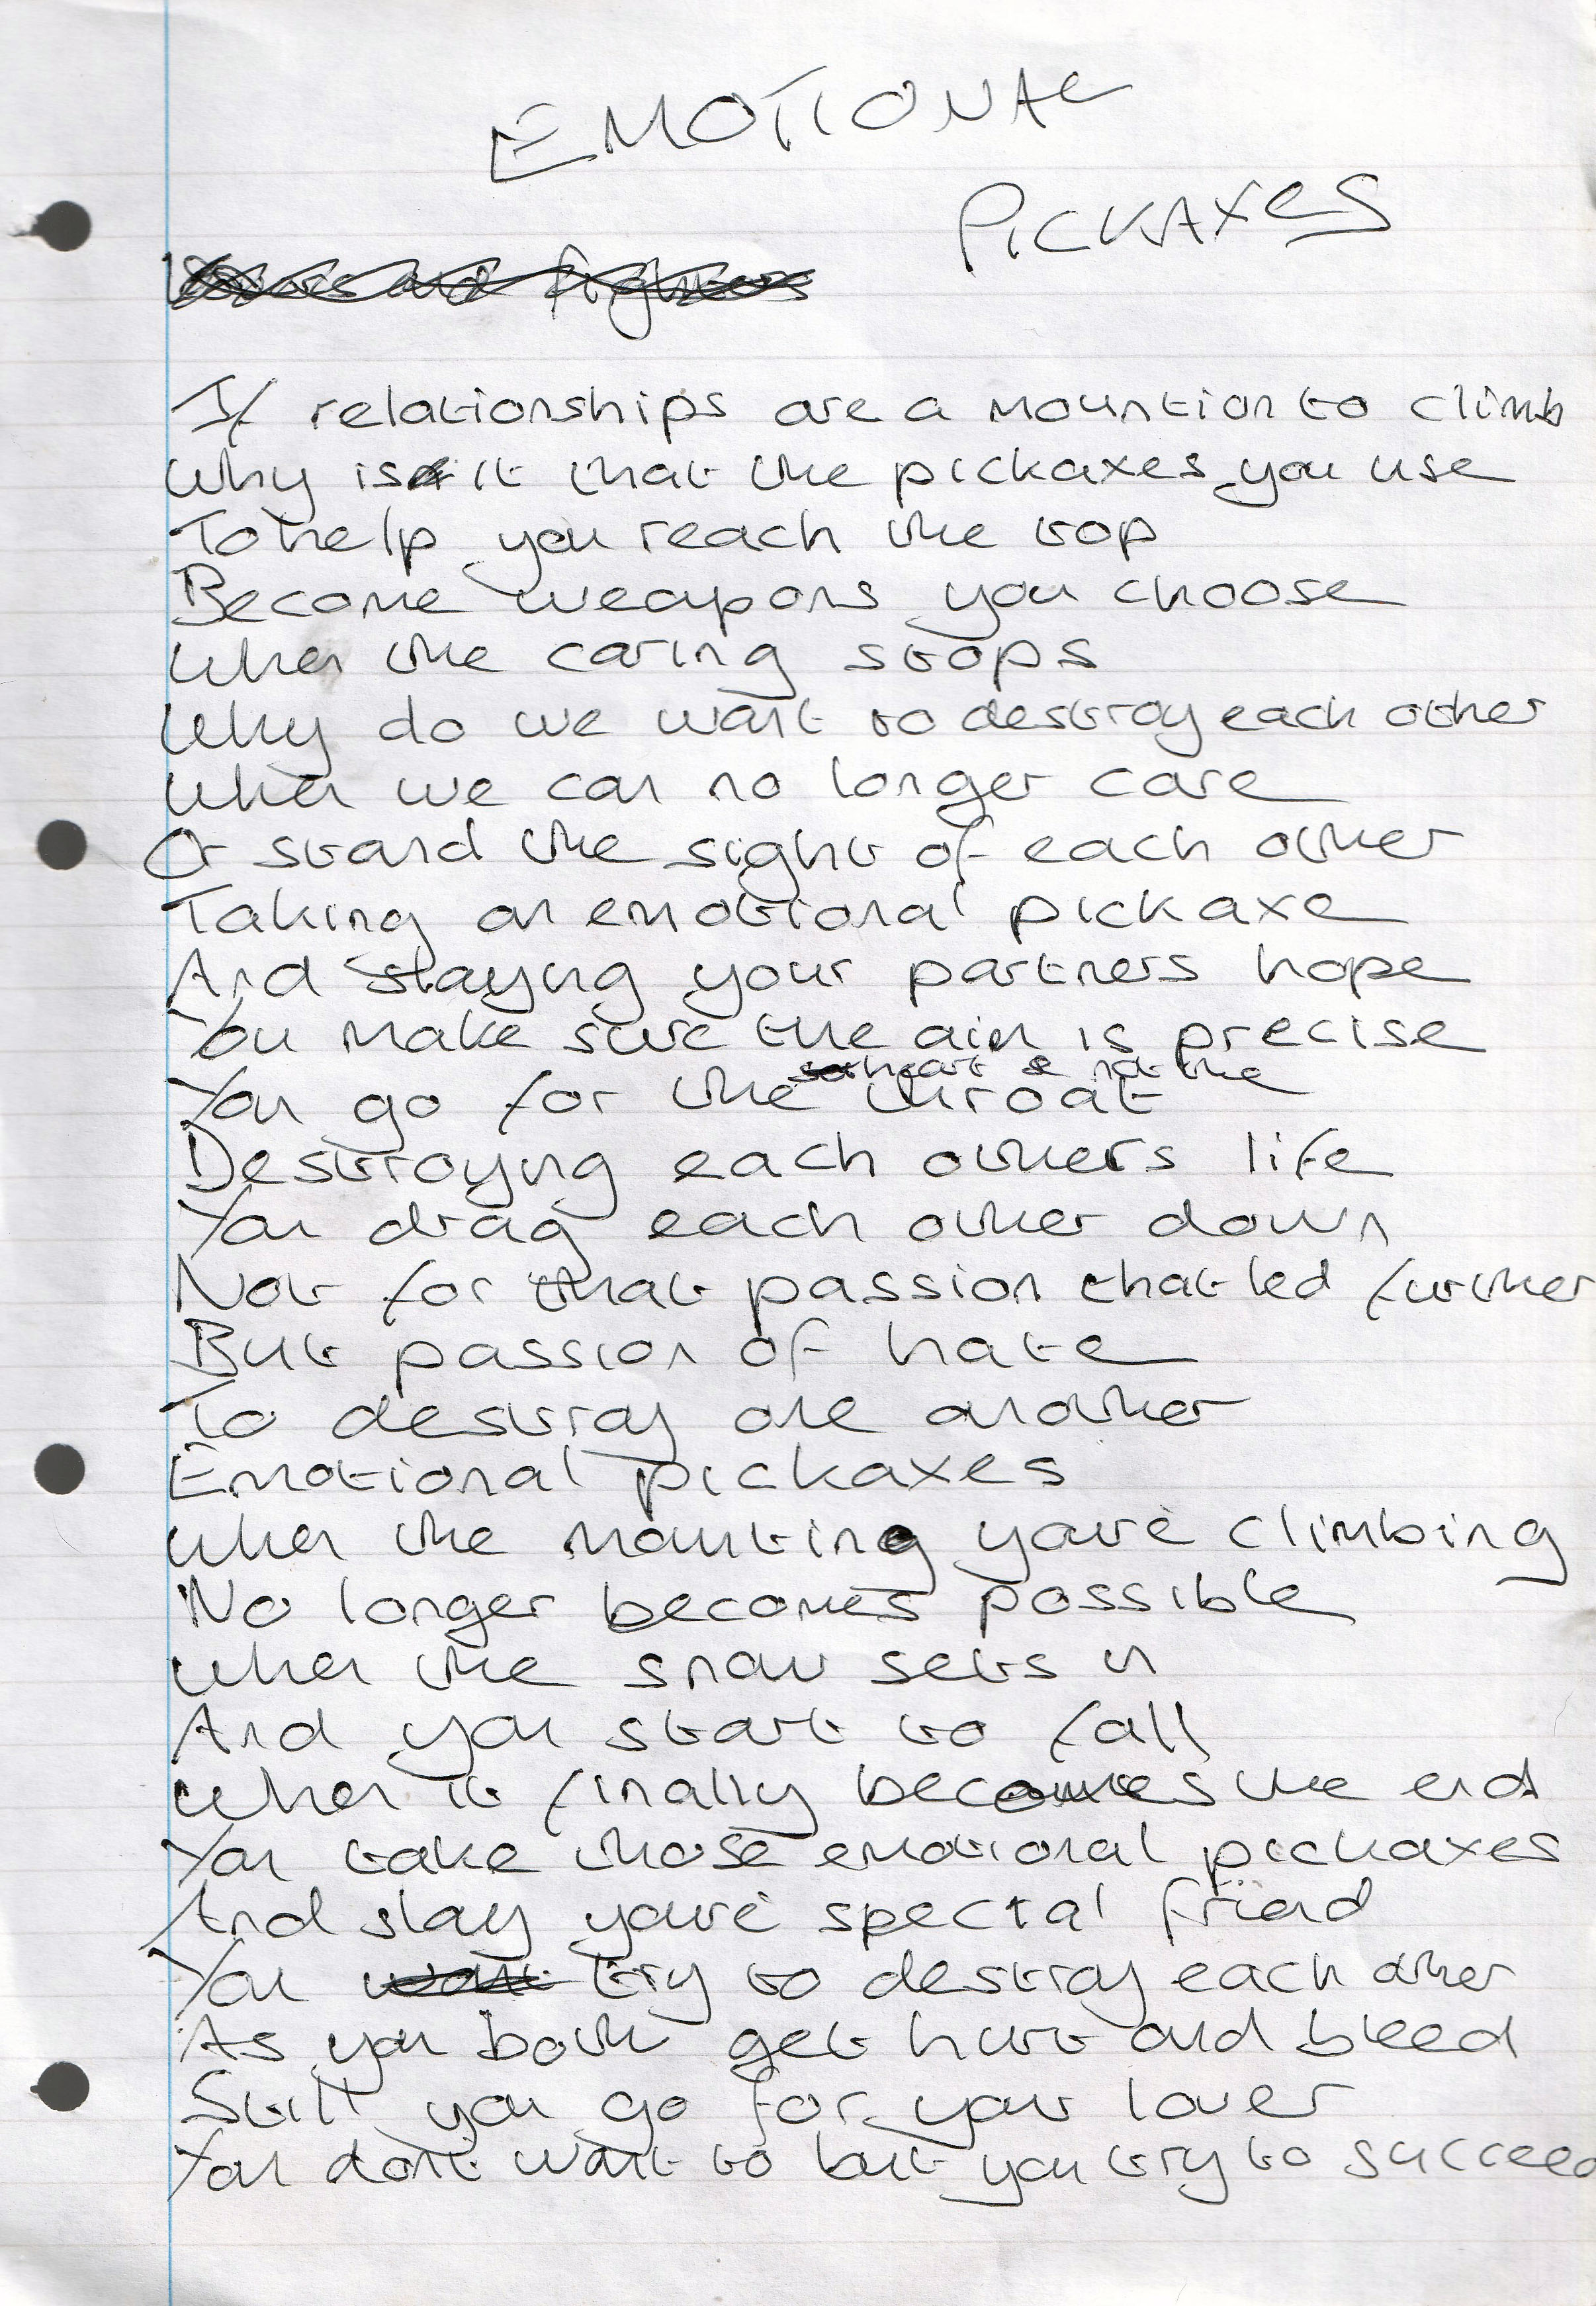 EMOTIONAL
PICKAXES
If relationships are a mountion to climb
Why is it that the pickaxes you use
To help you reach the top
Become weapons you choose
When the caring stops
Why do we want to destroy each other
When we can no longer care
Or stand the sight of each other
Taking an emotional pickaxe
And slaying your partners hope
You make sure the aim is precise
heart & not the
You go for the throat
Destroying each others life
You drag each other down
Not for that passion that led further
But passion of hate
To destroy one another
Emotional pickaxes
When the mounting youre climbing
No longer becomes possible
When the snow sets in
And you start to fall
When it finally becomes the end
You take those emotional pickaxes
And slay youre special friend
You try to destroy each other
As you both get hurt and bleed
Still you go for your lover
You dont want to but you try to succeed